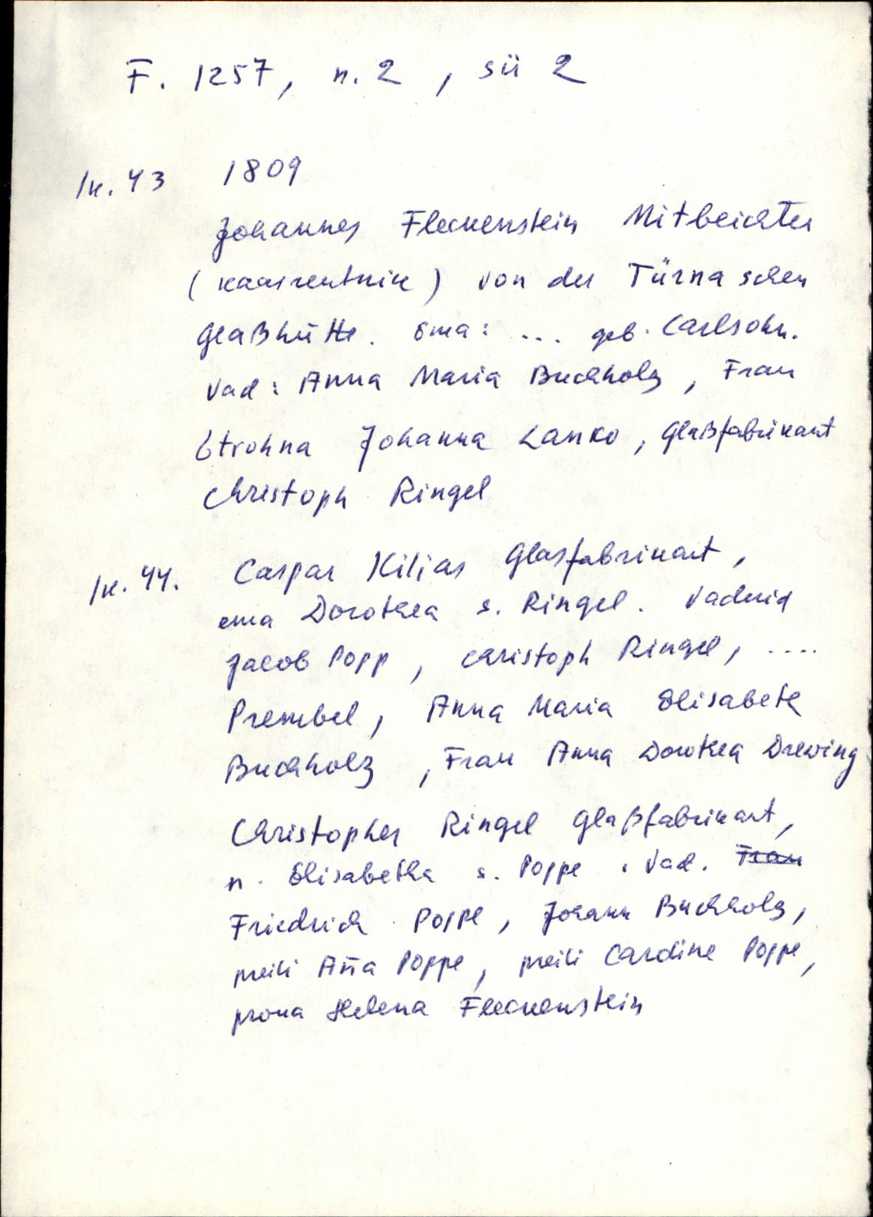 F. 1257, n. 2, sü 2
lk. 43 1809
Johannes Fleckenstein Mitbeichter
(kaasrentnik) von der Türnaschen
Glaßhütte. Ema: ... geb. Carlsohn.
Vad: Anna Maria Buchholz, Frau
Strohna Johanna Lanko, Glaßfabrikant
Christoph Ringel
lk. 44. Caspar Kilias Glasfabrikant,
ema Dorothea s. Ringel. Vaderid
Jacob Popp, Christoph Ringel, ....
Prembel, Anna Maria Elisabeth
Buchholz, Frau Anna Dorothea Drewing
Christopher Ringel Glaßfabrikant,
n. Elisabetha s. Poppe. Vad. Frau
Friedrich Poppe, Johann Buchholz,
preili Ana Poppe, preili Caroline Poppe,
proua Helena Fleckenstein